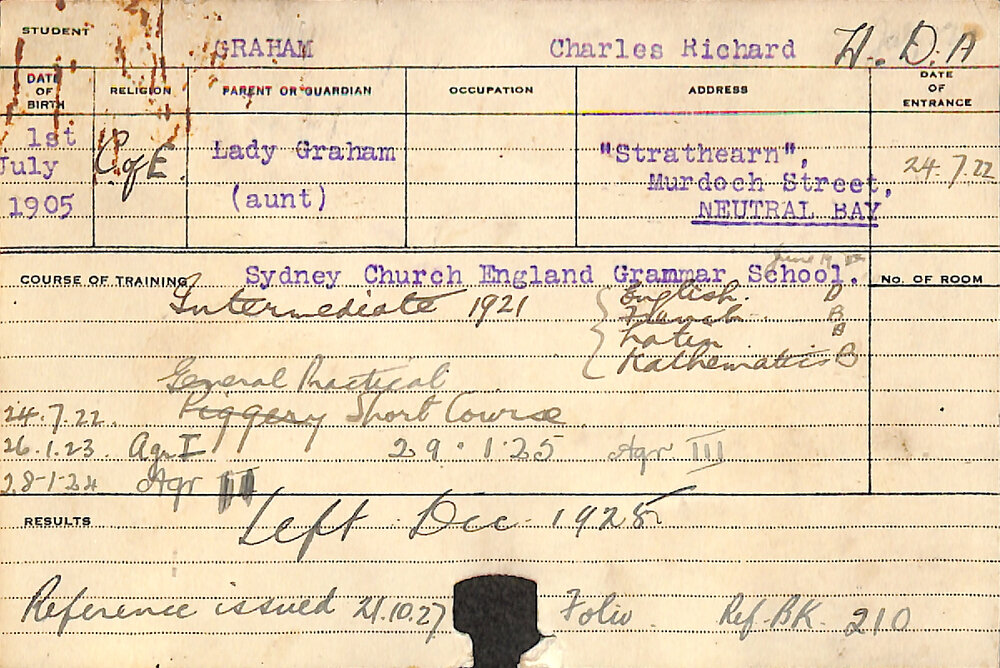 STUDENT GRAHAM Charles Richard H.D.A
DATE OF BIRTH RELIGION PARENT OR GUARDIAN OCCUPATION ADDRESS DATE OF ENTRANCE
1st July 1905 C of E. Lady Graham (aunt) "Strathearn", Murdoch Street, NEUTRAL BAY 24.7.22
COURSE OF TRAINING Sydney Church England Grammar School. No. OF ROOM
Intermediate 1921 English. B
French B
Latin B
Mathematics B
General Practical
24.7.22. Piggery Short Course
26.1.23. Agr I 29.1.25 Agr III
28-1-24 Agr II
RESULTS Left Dec. 1925
Reference issued 21.10.27 Folio Ref. BK. 210